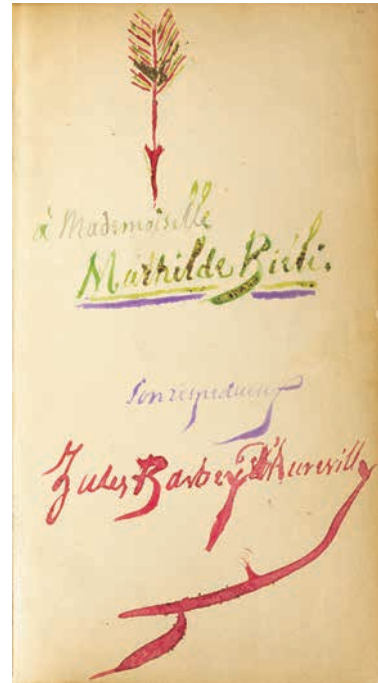 à Mademoiselle
Mathilde Biéli.
Son respectueux
Jules Barbey d'Aurevilly